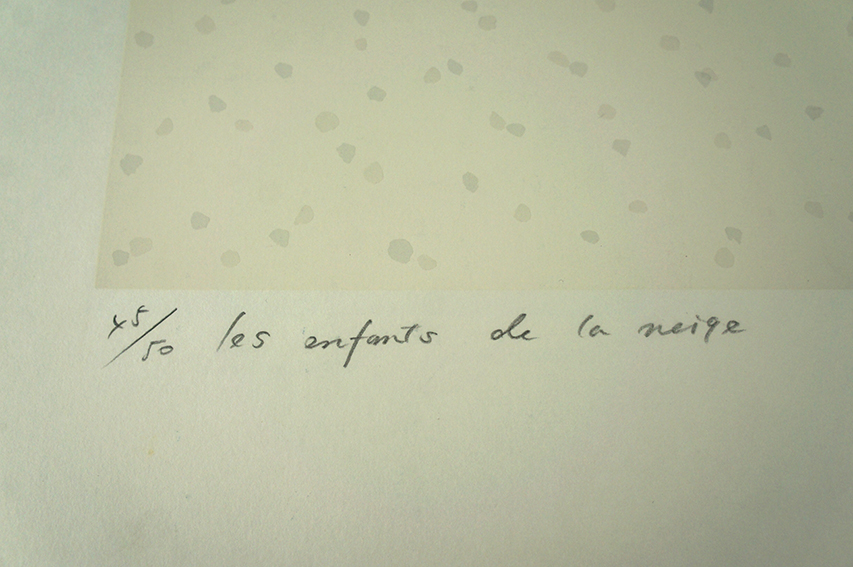 45/50 les enfants de la neige